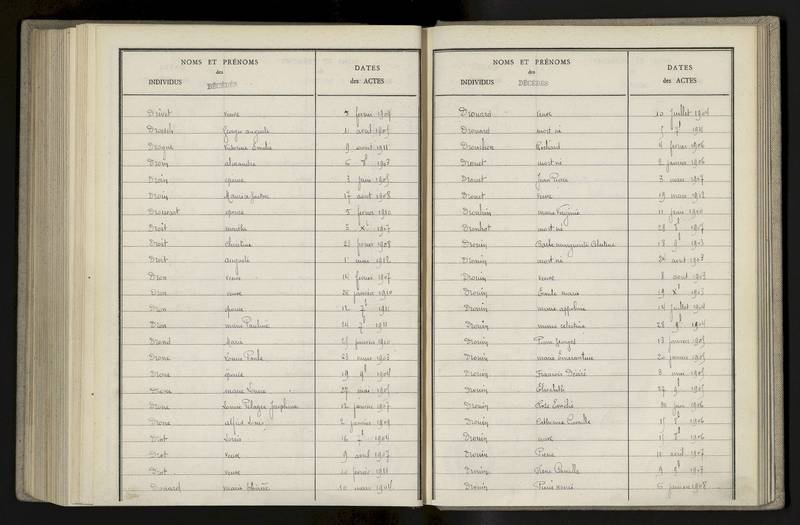 NOMS ET PRÉNOMS
des
INDIVIDUS DÉCÉDÉS
DATES
des ACTES
Drivet veuve 5 février 1904
11 avril 1905
9 août 1911
Droin alexandre 6 8bre 1903
Droin épouse 3 juin 1905
Droin 17 août 1908
épouse 5 février 1910
Droit 1907
Droit christine 23 février 1908
Droit auguste 1er mars 1912
Dron veuve février 1907
Dron veuve 26 janvier 1910
Dron épouse 12 7bre 1911
Dron marie Pauline 24 7bre 1911
janvier 1910
Drone Louise Paule 23 mars 1903
Drone épouse 19 9bre 1904
Drone marie Louise 27 mai 1905
Drone Louise Pélagie Joséphine 12 janvier 1907
Drone alfred Louis 2 janvier 1909
Drot Louis 16 7bre 1904
Drot veuve 9 avril 1907
Drot veuve 10 février 1911
marie 10 mars 1904
NOMS ET PRÉNOMS
des
INDIVIDUS DÉCÉDÉS
DATES
des ACTES
Drouard veuve 10 juillet 1904
Drouard mort né 7bre
4 février 1906
Drouet mort né 2 janvier 1906
Drouet Jean Pierre 3 mars 1907
Drouet veuve 19 mars 1912
Drouhin marie Virginie 11 juin
Drouhot mort né 28 8bre 1907
Drouin marguerite Célestine 18 9bre 1903
Drouin mort né 24 avril 1903
Drouin veuve 8 août 1903
Drouin Emile marie 19 Xbre 1903
Drouin marie appoline 14 juillet 1904
Drouin marie célestine 28 9bre 1904
Drouin Pierre Georges 13 janvier 1905
Drouin marie Emerantine 20 janvier 1905
Drouin François Désiré 3 mai 1905
Drouin Elisabeth 27 9bre 1905
Drouin Emélie juin 1906
Drouin Catherine Camille 15 8bre 1906
Drouin veuve 15 8bre 1906
Drouin Pierre 10 avril 1907
Drouin Camille 9 9bre 1907
Drouin 6 janvier 1908